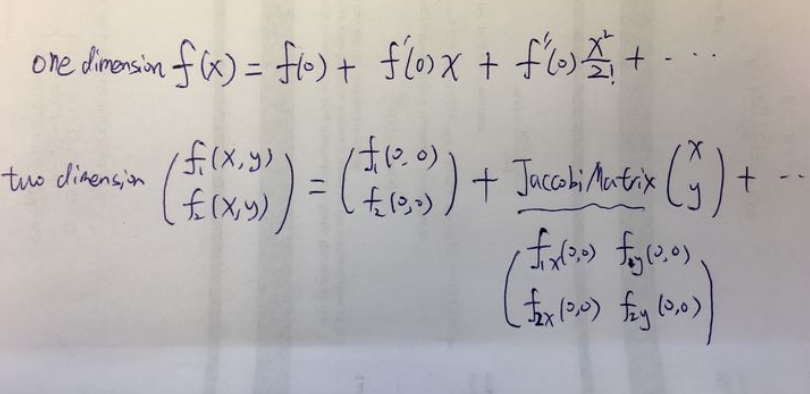 one dimension f(x) = f(0) + f'(0) x + f''(0) x²/2! + ...
two dimension (f₁(x,y) f₂(x,y)) = (f₁(0,0) f₂(0,0)) + Jaccobi Matrix (x y) + ..
(f₁ₓ(0,0) f₁y(0,0)
f₂ₓ(0,0) f₂y(0,0))